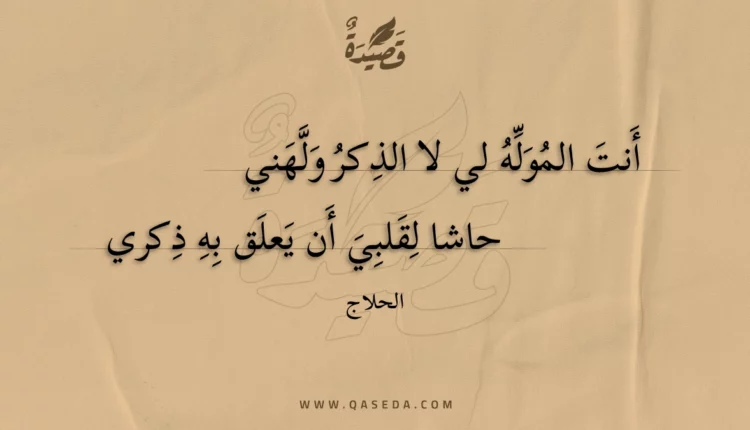 قَصِيْدَةٌ
أَنتَ المُوَلِّهُ لي لا الذِكرُ وَلَّهَني
حاشا لِقَلبِيَ أَن يَعلَق بِهِ ذِكري
الحلاج
WWW.QASEDA.COM